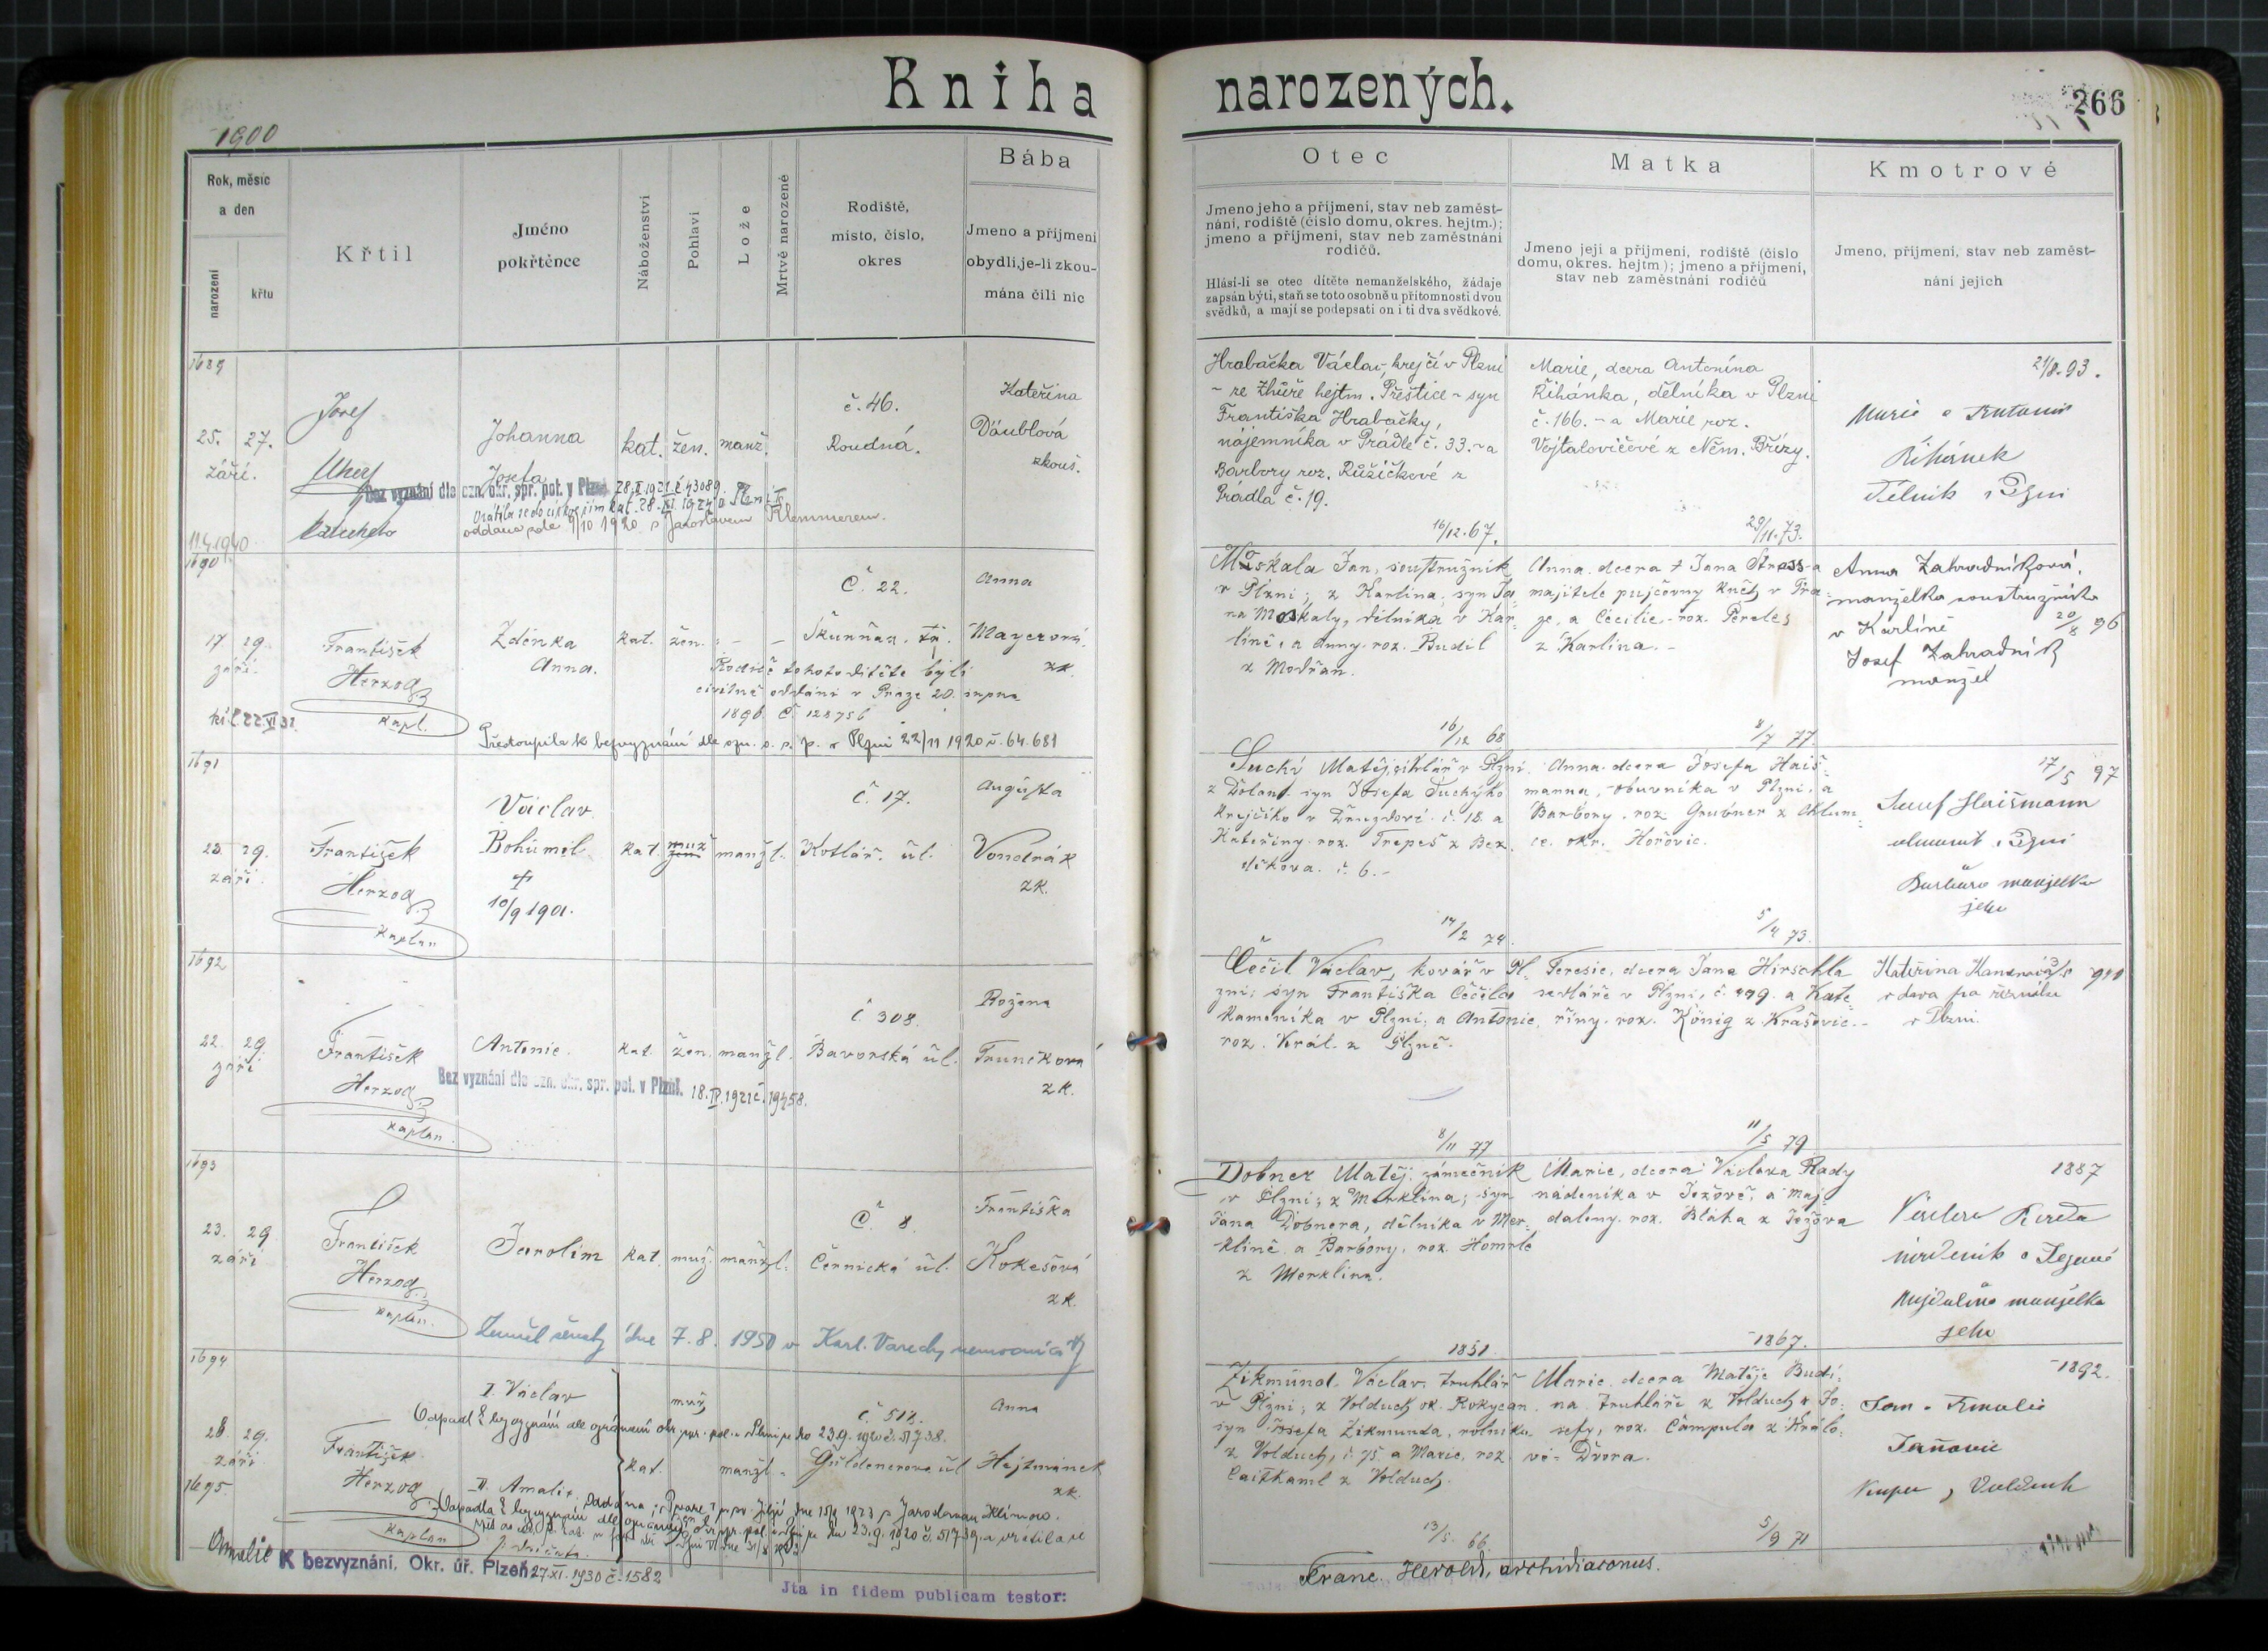 Kniha narozených.
266
1900
Rok, měsíc
a den
narození
křtu
Křtil
Jméno
pokřtěnce
Náboženství
Pohlaví
Lože
Mrtvě narozené
Rodiště,
místo, číslo,
okres
Bába
Jmeno a příjmení
obydlí, je-li zkou-
mána čili nic
Otec
Jmeno jeho a příjmení, stav neb zaměst-
nání, rodiště (číslo domu, okres. hejtm.);
jmeno a příjmení, stav neb zaměstnání
rodičů.
Hlásí-li se otec dítěte nemanželského, žádaje
zapsán býti, staň se toto osobně u přítomnosti dvou
svědků, a mají se podepsati on i ti dva svědkové.
Matka
Jmeno její a příjmení, rodiště (číslo
domu, okres. hejtm.); jmeno a příjmení,
stav neb zaměstnání rodičů
Kmotrové
Jmeno, příjmení, stav neb zaměst-
nání jejich
1689
25. 27.
září.
Josef
Johanna
Josefa
kat. žen. manž.
č. 46.
Roudná.
Kateřina
Däublová
zkouš.
Bez vyznání dle ozn. okr. spr. pol. v Plzni 28.X.1921 č. 43089.
oddána dle 9/10 1920 s Jaroslavem Klemmerem.
11.4.1940
Hrabačka Václav, krejčí v Plzni
- ze Zhůře hejtm. Přeštice - syn
Františka Hrabačky,
nájemníka v Prádle č. 33. - a
Barbory roz. Růžičkové z
Prádla č. 19.
16/12.67.
Marie, dcera Antonína
Řihánka, dělníka v Plzni
č. 166. - a Marie roz.
Vojtalovičové z Něm. Břízy.
29/11.73.
21/8.93.
Marie a Antonín
Řihánek
Dělník v Plzni
1690
17 29.
září.
František
Herzog
kapl.
Zdenka
Anna.
kat. žen. - -
Č. 22.
Škurňan. tř.
Anna
Mayerová
zk.
Rodiče tohoto dítěte byli
civilně oddáni v Praze 20. srpna
1896 Č. 128756
Přestoupila k bezvyznání dle ozn. o. s. p. v Plzni 22/11 1920 č. 64.681
Moskala Jan, soustružník
v Plzni; z Karlína, syn Ja-
na Moskaly, dělníka v Kar-
líně, a Anny roz. Budil
z Modřan.
16/12 68
Anna dcera † Jana Strass-a
majitele pujčovny knih v Pra-
ze, a Cecilie roz. Pereles
z Karlína.
8/7 77.
Anna Zahradníková,
manželka soustružníka
v Karlíně 20/8 96
Josef Zahradník
manžel
1691
23. 29.
září.
František
Herzog
kaplan
Václav
Bohumil
†
10/9 1901.
kat. muž manžl.
č. 17.
Kotlář. ul.
Augusta
Vondrák
zk.
Suchý Matěj, cihlář v Plzni
z Dolan, syn Josefa Suchýho
krejčího v Druzdové č. 18. a
Kateřiny roz. Trepeš z Bez-
děkova. č. 6. -
14/2 74.
Anna dcera Josefa Haiš-
manna, obuvníka v Plzni, a
Barbory roz. Grubner z Chlum-
ce. okr. Hořovic.
5/4 73.
17/5 97
Josef Haišmann
v Plzni
Barbora manželka
jeho
1692
22. 29
září
František
Herzog
kaplan.
Antonie.
kat. žen. manžl.
č. 308.
Bavorská ul.
Božena
Trunečková
zk.
Bez vyznání dle ozn. okr. spr. pol. v Plzni. 18.IV.1921 č. 19458.
Čečil Václav, kovář v Pl-
zni; syn Františka Čečila
kameníka v Plzni; a Antonie,
roz. Král. z Plzně.
8/11 77
Teresie, dcera Jana Hirschla
sedláře v Plzni, č. 279. a Kate-
řiny roz. König z Krašovic.
11/5 79
Kateřina
vdova po řezníku
v Plzni.
1693
23. 29
září
František
Herzog
kaplan.
Jarolím
kat. muž. manžl.
Č. 8.
Černická ul.
Františka
Kokešová
zk.
Zemřel dne 7.8. 1950 v Karl. Varech, nemocnici
Dobner Matěj, zámečník
v Plzni; z Merklína; syn
Jana Dobnera, dělníka v Mer-
klíně a Barbory, roz. Homrle
z Merklína.
1851
Marie, dcera Václava Rady
nádeníka v Ježově, a Maj-
daleny roz. Bláha z Ježova
1867.
1887
Majdaléna manželka
jeho
1694
28. 29.
září
1695.
František
Herzog
kaplan
I. Václav
II. Amalie.
muž
kat. manžl.
č. 518.
Guldenerova ul.
Anna
Hejtmánek
zk.
Odpadl k bezvyznání dle oznámení okr. spr. pol. v Plzni ze dne 23.9. 1920 č. 51738.
Amalie K bezvyznání, Okr. úř. Plzeň 27.XI.1930 č. 1582
Zikmund Václav, truhlář
v Plzni; z Volduch ok. Rokycan
syn Josefa Zikmunda, rolníka
z Volduch, č. 75 a Marie, roz.
Caitkaml z Volduch.
13/5. 66.
Marie, dcera Matěje Budí-
na, truhláře z Volduch a Jo-
sefy, roz. Čampula z Králo-
vé Dvora.
5/9 71
1892.
Jan a Amalie
Jta in fidem publicam testor:
Franc. Herold, archidiaconus.